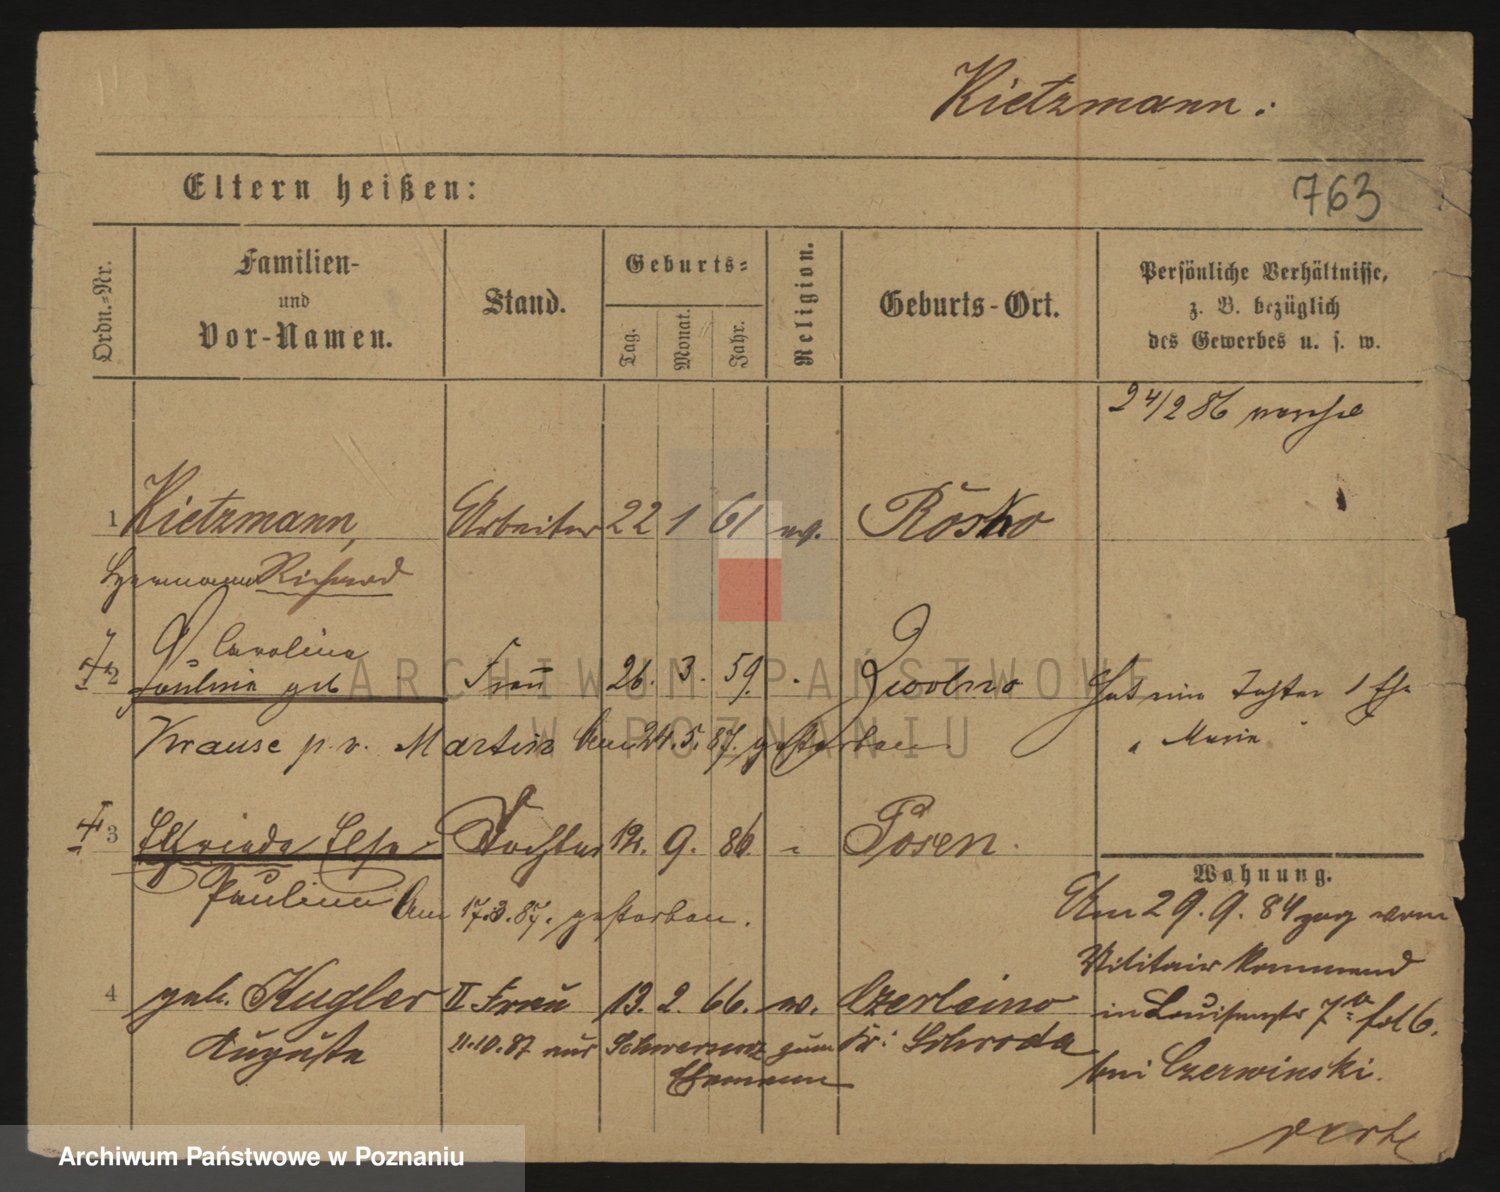 Kietzmann:
Eltern heißen:
763
Ordn.-Nr.
Familien-
und
Vor-Namen.
Stand.
Geburts-
Tag.
Monat.
Jahr.
Religion.
Geburts-Ort.
Persönliche Verhältnisse,
z. B. bezüglich
des Gewerbes u. s. w.
24/2 86
1 Kietzmann, Arbeiter 22 1 61 ev. Rosko
Hermann Richard
Carolina
2 Pauline geb Frau 26. 3. 59. Hat eine Tochter 1 Ehe
Krause p. v. Martin Am 24.5.87. gestorben
" Marie
3 Elfriede Else Tochter 12. 9. 86. " Posen.
Paulina Am 17.3.87. gestorben.
Wohnung.
Am 29.9.84 zog vom
Militair Kommand
in Louisenstr 7a fol 6.
bei Czerwinski.
verte
4 geb. Kugler II Frau 13. 2. 66. ev. Czerleino
Auguste 21.10.87 aus Schwersenz zum Kr: Schroda
Ehemann
ARCHIWUM PAŃSTWOWE
W POZNANIU
Archiwum Państwowe w Poznaniu